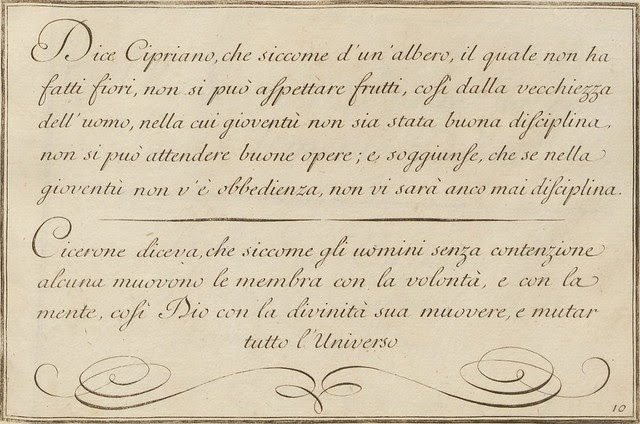 Dice Cipriano, che siccome d'un'albero, il quale non ha
fatti fiori, non si può aſpettare frutti, coſì dalla vecchiezza
dell'uomo, nella cui gioventù non sia stata buona diſciplina,
non si può attendere buone opere; e, soggiunſe, che se nella
gioventù non v'è obbedienza, non vi sarà anco mai diſciplina.
Cicerone diceva, che siccome gli uomini senza contenzione
alcuna muovono le membra con la volontà, e con la
mente, coſì Dio con la divinità sua muovere, e mutar
tutto l'Universo
10